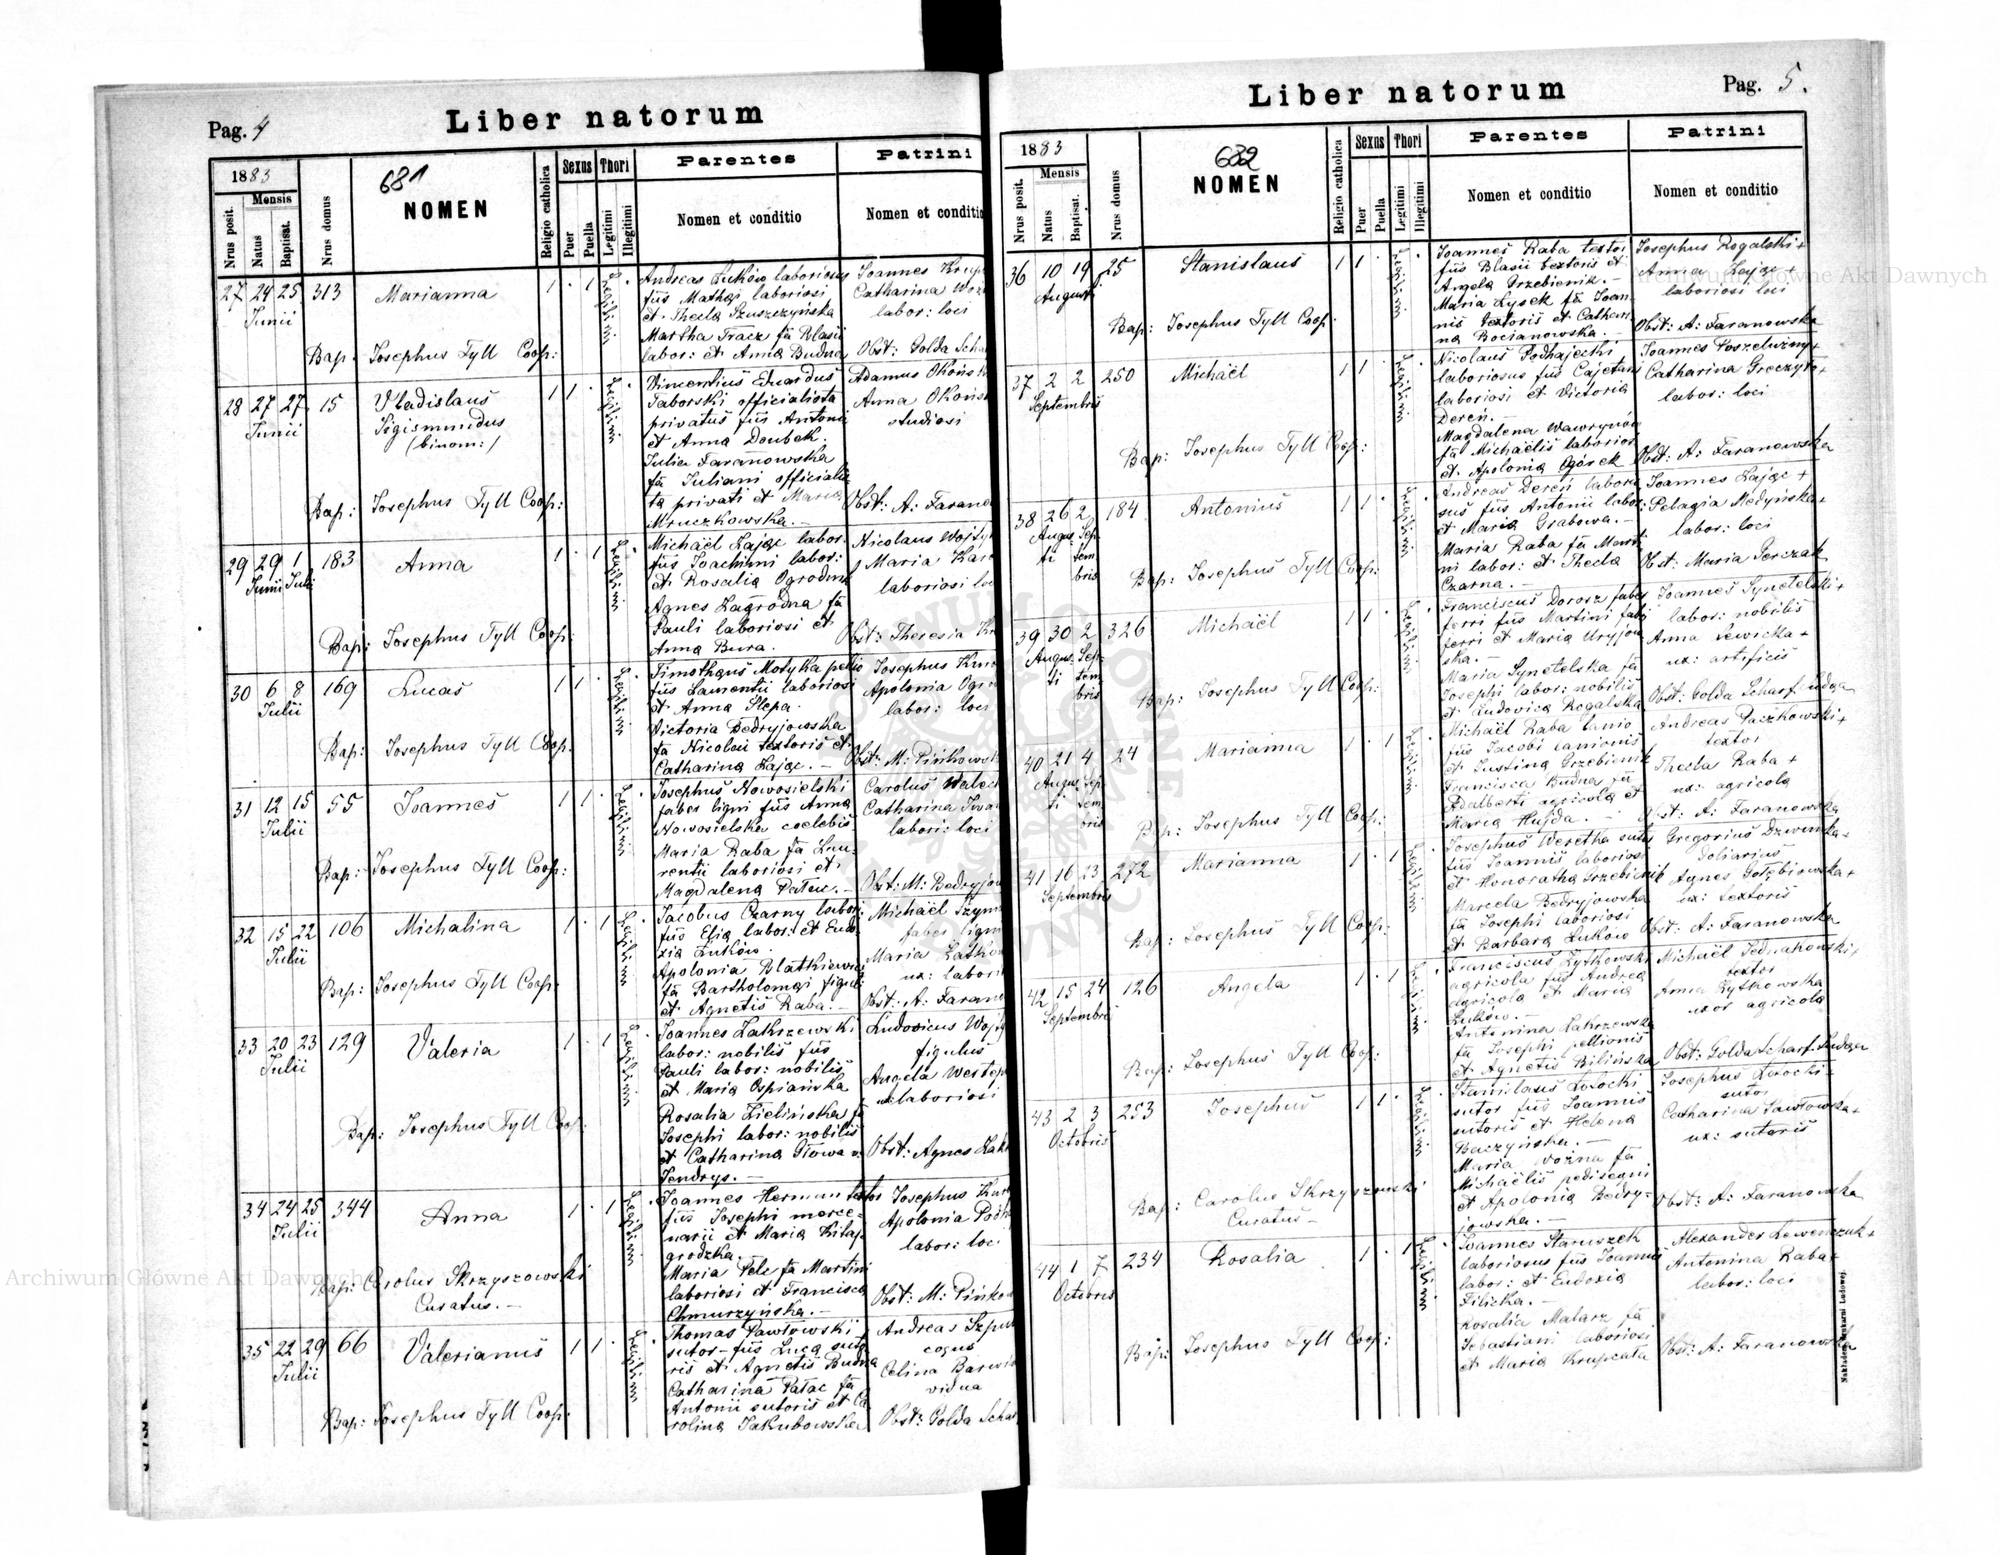 Liber natorum
Pag. 4
1883
681
NOMEN
Mensis
Nrus posit.
Natus
Baptisat.
Nrus domus
Religio catholica
Sexus
Puer
Puella
Thori
Legitimi
Illegitimi
Parentes
Nomen et conditio
Patrini
Nomen et conditio
27 24 25 313 Marianna 1 . 1
Junii
Andreas Łuków laboriosus
fiūs Mathæi laboriosi
et Thecla Szuszczyńska
Martha Tracz fā Blasii
labor: et Anna Budna
Joannes
Catharina
labor: loci
Obst: Golda
Bap: Josephus Tyll Coop:
28 27 27 15 Vladislaus 1 1 .
Junii
Sigismundus
(binom:)
Vincentius Eduardus
Taborski officialista
privatus fiūs Antonii
et Anna Doubek.
Julia Faranowska
fā Juliani officialis
ta privati et Maria
Mruczkowska.—
Adamus
Anna
studiosi
Obst: A:
Bap: Josephus Tyll Coop:
29 29 1 183 Anna 1 . 1
Junii Julii
Michaël Zając labor:
fiūs Joachimi labor:
et Rosalia Ogrodna
Agnes Zagrodna fā
Pauli laboriosi et
Anna Bura.
Nicolaus
Maria
laboriosi
Obst: Theresia
Bap: Josephus Tyll Coop:
30 6 8 169 Lucas 1 1 .
Julii
Timothæus Motyka pellio
fiūs Laurentii laboriosi
et Anna Slepa.
Victoria Bedryjowska
fā Nicolai textoris et
Catharina Zając.—
Josephus
Apolonia
labor: loci
Obst: M:
Bap: Josephus Tyll Coop:
31 12 15 55 Joannes 1 1 .
Julii
Josephus Nowosielski
faber ligni fiūs Anna
Nowosielska coelebis
Maria Raba fā Lau-
rentii laboriosi et
Magdalena Patac.—
Carolus
Catharina
labori: loci
Obst: M:
Bap: Josephus Tyll Coop:
32 15 22 106 Michalina 1 . 1
Julii
Jacobus Czarny labor:
fiūs Elia labor: et Eudo
xia Łuków.
Apolonia Blatkiewicz
fā Bartholomæi figuli
et Agnetis Raba.—
Michaël
faber ligni
Maria
ux: labor
Obst: A:
Bap: Josephus Tyll Coop:
33 20 23 129 Valeria 1 . 1
Julii
Joannes Zakrzewski
labor: nobilis fiūs
Pauli labor: nobilis
et Maria Ospiańska
Rosalia Zielińska fā
Josephi labor: nobilis
et Catharina Głowa v.
Jendrys.—
Ludovicus
figulus
Angela
laboriosi
Obst: Agnes
Bap: Josephus Tyll Coop:
34 24 25 344 Anna 1 . 1
Julii
Joannes Herman textor
fiūs Josephi merce-
narii et Maria Kitaj-
grodzka.
Maria Pele fā Martini
laboriosi et Francisca
Chmurzyńska.—
Josephus
Apolonia
labor: loci
Obst: M:
Bap: Carolus Skrzyszowski
Curatus.—
35 22 29 66 Valerianus 1 1 .
Julii
Thomas Pawłowski
sutor fiūs Luca suto
ris et Agnetis Budna
Catharina Patac fā
Antonii sutoris et Ca
rolina Jakubowska
Andreas
coquus
Celina
vidua
Obst: Golda
Bap: Josephus Tyll Coop:
Liber natorum
Pag. 5.
1883
632
NOMEN
Mensis
Nrus posit.
Natus
Baptisat.
Nrus domus
Religio catholica
Sexus
Puer
Puella
Thori
Legitimi
Illegitimi
Parentes
Nomen et conditio
Patrini
Nomen et conditio
36 10 19 25 Stanislaus 1 1 .
Augusti
Joannes Raba textor
fiūs Blasii textoris et
Angela Grzebienik.—
Maria Łysek fā Joan-
nis textoris et Cathari
na Bocianowska.—
Josephus Rogalski +
Anna Zając +
laboriosi loci
Obst: A: Faranowska
Bap: Josephus Tyll Coop:
37 2 2 250 Michaël 1 1 .
Septembris
Nicolaus Podhajecki
laboriosus fiūs Cajetani
laboriosi et Victoria
Dereń.—
Magdalena Wawrynów
fā Michaëlis laboriosi
et Apolonia Ogórek
Joannes Poszeluzny +
Catharina Greczyło +
labor: loci
Obst: A: Faranowska
Bap: Josephus Tyll Coop:
38 26 2 184 Antonius 1 1 .
Augus Sep
ti tem
bris
Andreas Dereń laborio
sus fiūs Antonii labor:
et Maria Grabowa.—
Maria Raba fā Marti
ni labor: et Thecla
Czarna.—
Joannes Zając +
Pelagia Medyńska +
labor: loci
Obst: Maria Perczak
Bap: Josephus Tyll Coop:
39 30 2 326 Michaël 1 1 .
Augus Sep
ti tem
bris
Franciscus Dorosz faber
ferri fiūs Martini fabri
ferri et Maria Uryjow
ska.—
Maria Synetelska fā
Josephi labor: nobilis
et Ludovica Rogalska
Joannes Synetelski +
labor: nobilis
Anna Lewicka +
ux: artificis
Obst: Golda Scharf: Indga
Bap: Josephus Tyll Coop:
40 21 4 24 Marianna 1 . 1
Augus Sep
ti tem
bris
Michaël Raba lanio
fiūs Jacobi lanionis
et Justina Grzebienik
Francisca Budna fā
Adalberti agricola et
Maria Hujda.—
Andreas Paczkowski +
textor
Thecla Raba +
ux: agricola
Obst: A: Faranowska
Bap: Josephus Tyll Coop:
41 16 23 272 Marianna 1 . 1
Septembris
Josephus Weretka sutor
fiūs Joannis laboriosi
et Honoratha Grzebienik
Marcela Bedryjowska
fā Josephi laboriosi
et Barbara Łuków
Gregorius
doliarius
Agnes Gołębiowska +
ux: textoris
Obst: A: Faranowska
Bap: Josephus Tyll Coop:
42 15 24 126 Angela 1 . 1
Septembris
Franciscus Żytkowski
agricola fiūs Andrea
agricola et Maria
Łuków.—
Antonina Zakrzewska
fā Josephi pellionis
et Agnetis Bilińska
Michaël Jednakowski +
textor
Anna Żytkowska
uxor agricola
Obst: Golda Scharf: Indga
Bap: Josephus Tyll Coop:
43 2 3 253 Josephus 1 1 .
Octobris
Stanislaus Łotocki
sutor fiūs Joannis
sutoris et Helena
Baczyńska.—
Maria Woźna fā
Michaëlis pedisequi
et Apolonia Bedry-
jowska.—
Josephus Łotocki +
sutor
Catharina Pawłowska +
ux: sutoris
Obst: A: Faranowska
Bap: Carolus Skrzyszowski
Curatus—
44 1 7 234 Rosalia 1 . 1
Octobris
Joannes Staruszek
laboriosus fiūs Joannis
labor: et Eudoxia
Filicka.—
Rosalia Malarz fā
Sebastiani laboriosi
et Maria Krupcata
Alexander Lewenczuk +
Antonina Raba +
labor: loci
Obst: A: Faranowska
Bap: Josephus Tyll Coop:
Nakładem Drukarni Ludowej.
Archiwum Główne Akt Dawnych
Archiwum Główne Akt Dawnych